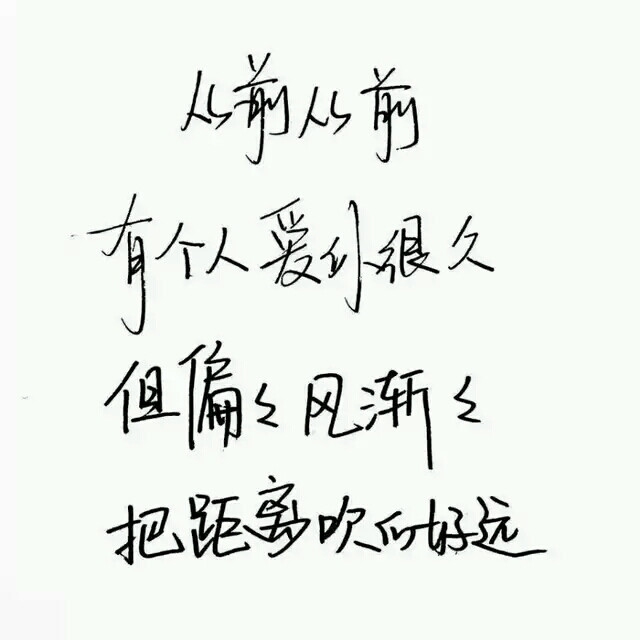 从前从前
有个人爱你很久
但偏々风渐々
把距离吹的好远